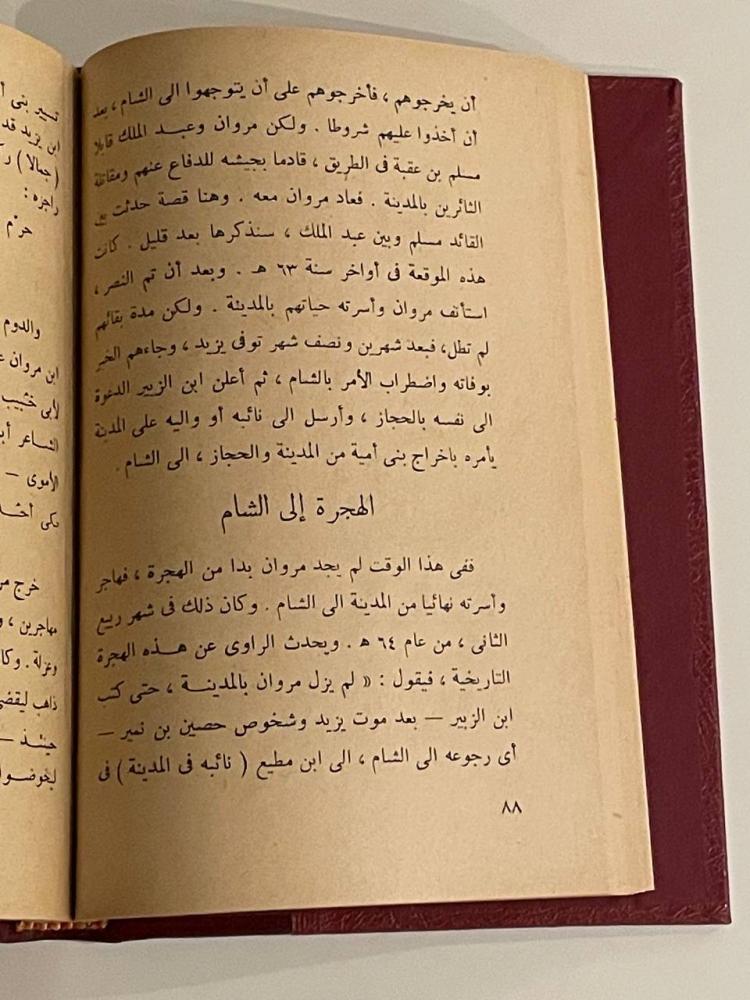 أن يخرجوهم ، فأخرجوهم على أن يتوجهوا الى الشام ، بعد
أن أخذوا عليهم شروطا . ولكن مروان وعبد الملك قابلا
مسلم بن عقبة فى الطريق ، قادما بجيشه للدفاع عنهم ومقاتلة
الثائرين بالمدينة . فعاد مروان معه . وهنا قصة حدثت بين
القائد مسلم وبين عبد الملك ، سنذكرها بعد قليل . كانت
هذه الموقعة فى أواخر سنة ٦٣ هـ . وبعد أن تم النصر ،
استأنف مروان وأسرته حياتهم بالمدينة . ولكن مدة بقائهم
لم تطل، فبعد شهرين ونصف شهر توفى يزيد ، وجاءهم الخبر
بوفاته واضطراب الأمر بالشام ، ثم أعلن ابن الزبير الدعوة
الى نفسه بالحجاز ، وأرسل الى نائبه أو واليه على المدينة
يأمره باخراج بنى أمية من المدينة والحجاز ، الى الشام .
الهجرة إلى الشام
ففى هذا الوقت لم يجد مروان بدا من الهجرة ، فهاجر
وأسرته نهائيا من المدينة الى الشام . وكان ذلك فى شهر ربيع
الثانى ، من عام ٦٤ هـ . ويحدث الراوى عن هذه الهجرة
التاريخية ، فيقول : « لم يزل مروان بالمدينة ، حتى كتب
ابن الزبير — بعد موت يزيد وشخوص حصين بن نمير —
أى رجوعه الى الشام ، الى ابن مطيع ( نائبه فى المدينة ) فى
٨٨
ابن يزيد قد
( جمالا )
راجزه :
والدوم
ابن مروان
لأبى خبيب
الشاعر
الأموى —
خرج
مهاجرين ،
وعزلة . وكا
ذاهب ليقضى
حينئذ —